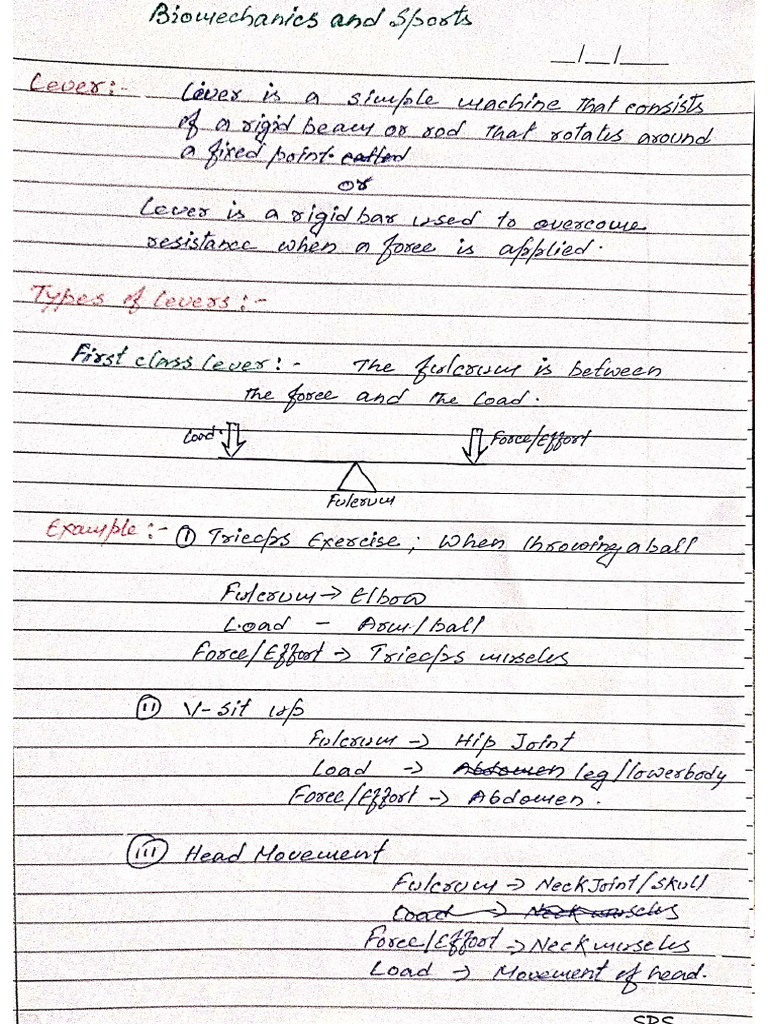 Biomechanics and Sports
__/__/____
Lever:- Lever is a simple machine that consists
of a rigid beam or rod that rotates around
a fixed point. called
or
Lever is a rigid bar used to overcome
resistance when a force is applied.
Types of Levers:-
First class lever:- The fulcrum is between
the force and the Load.
Load Force/Effort
Fulcrum
Example:- (I) Triecps Exercise; when throwing a ball
Fulcrum → Elbow
Load - Arm/ball
Force/Effort → Triecps muscles
(II) V-sit up
Fulcrum → Hip Joint
Load → Abdomen leg/lowerbody
Force/Effort → Abdomen.
(III) Head Movement
Fulcrum → Neck Joint/Skull
Load → Neck muscles
Force/Effort → Neck muscles
Load → Movement of head.
SPS